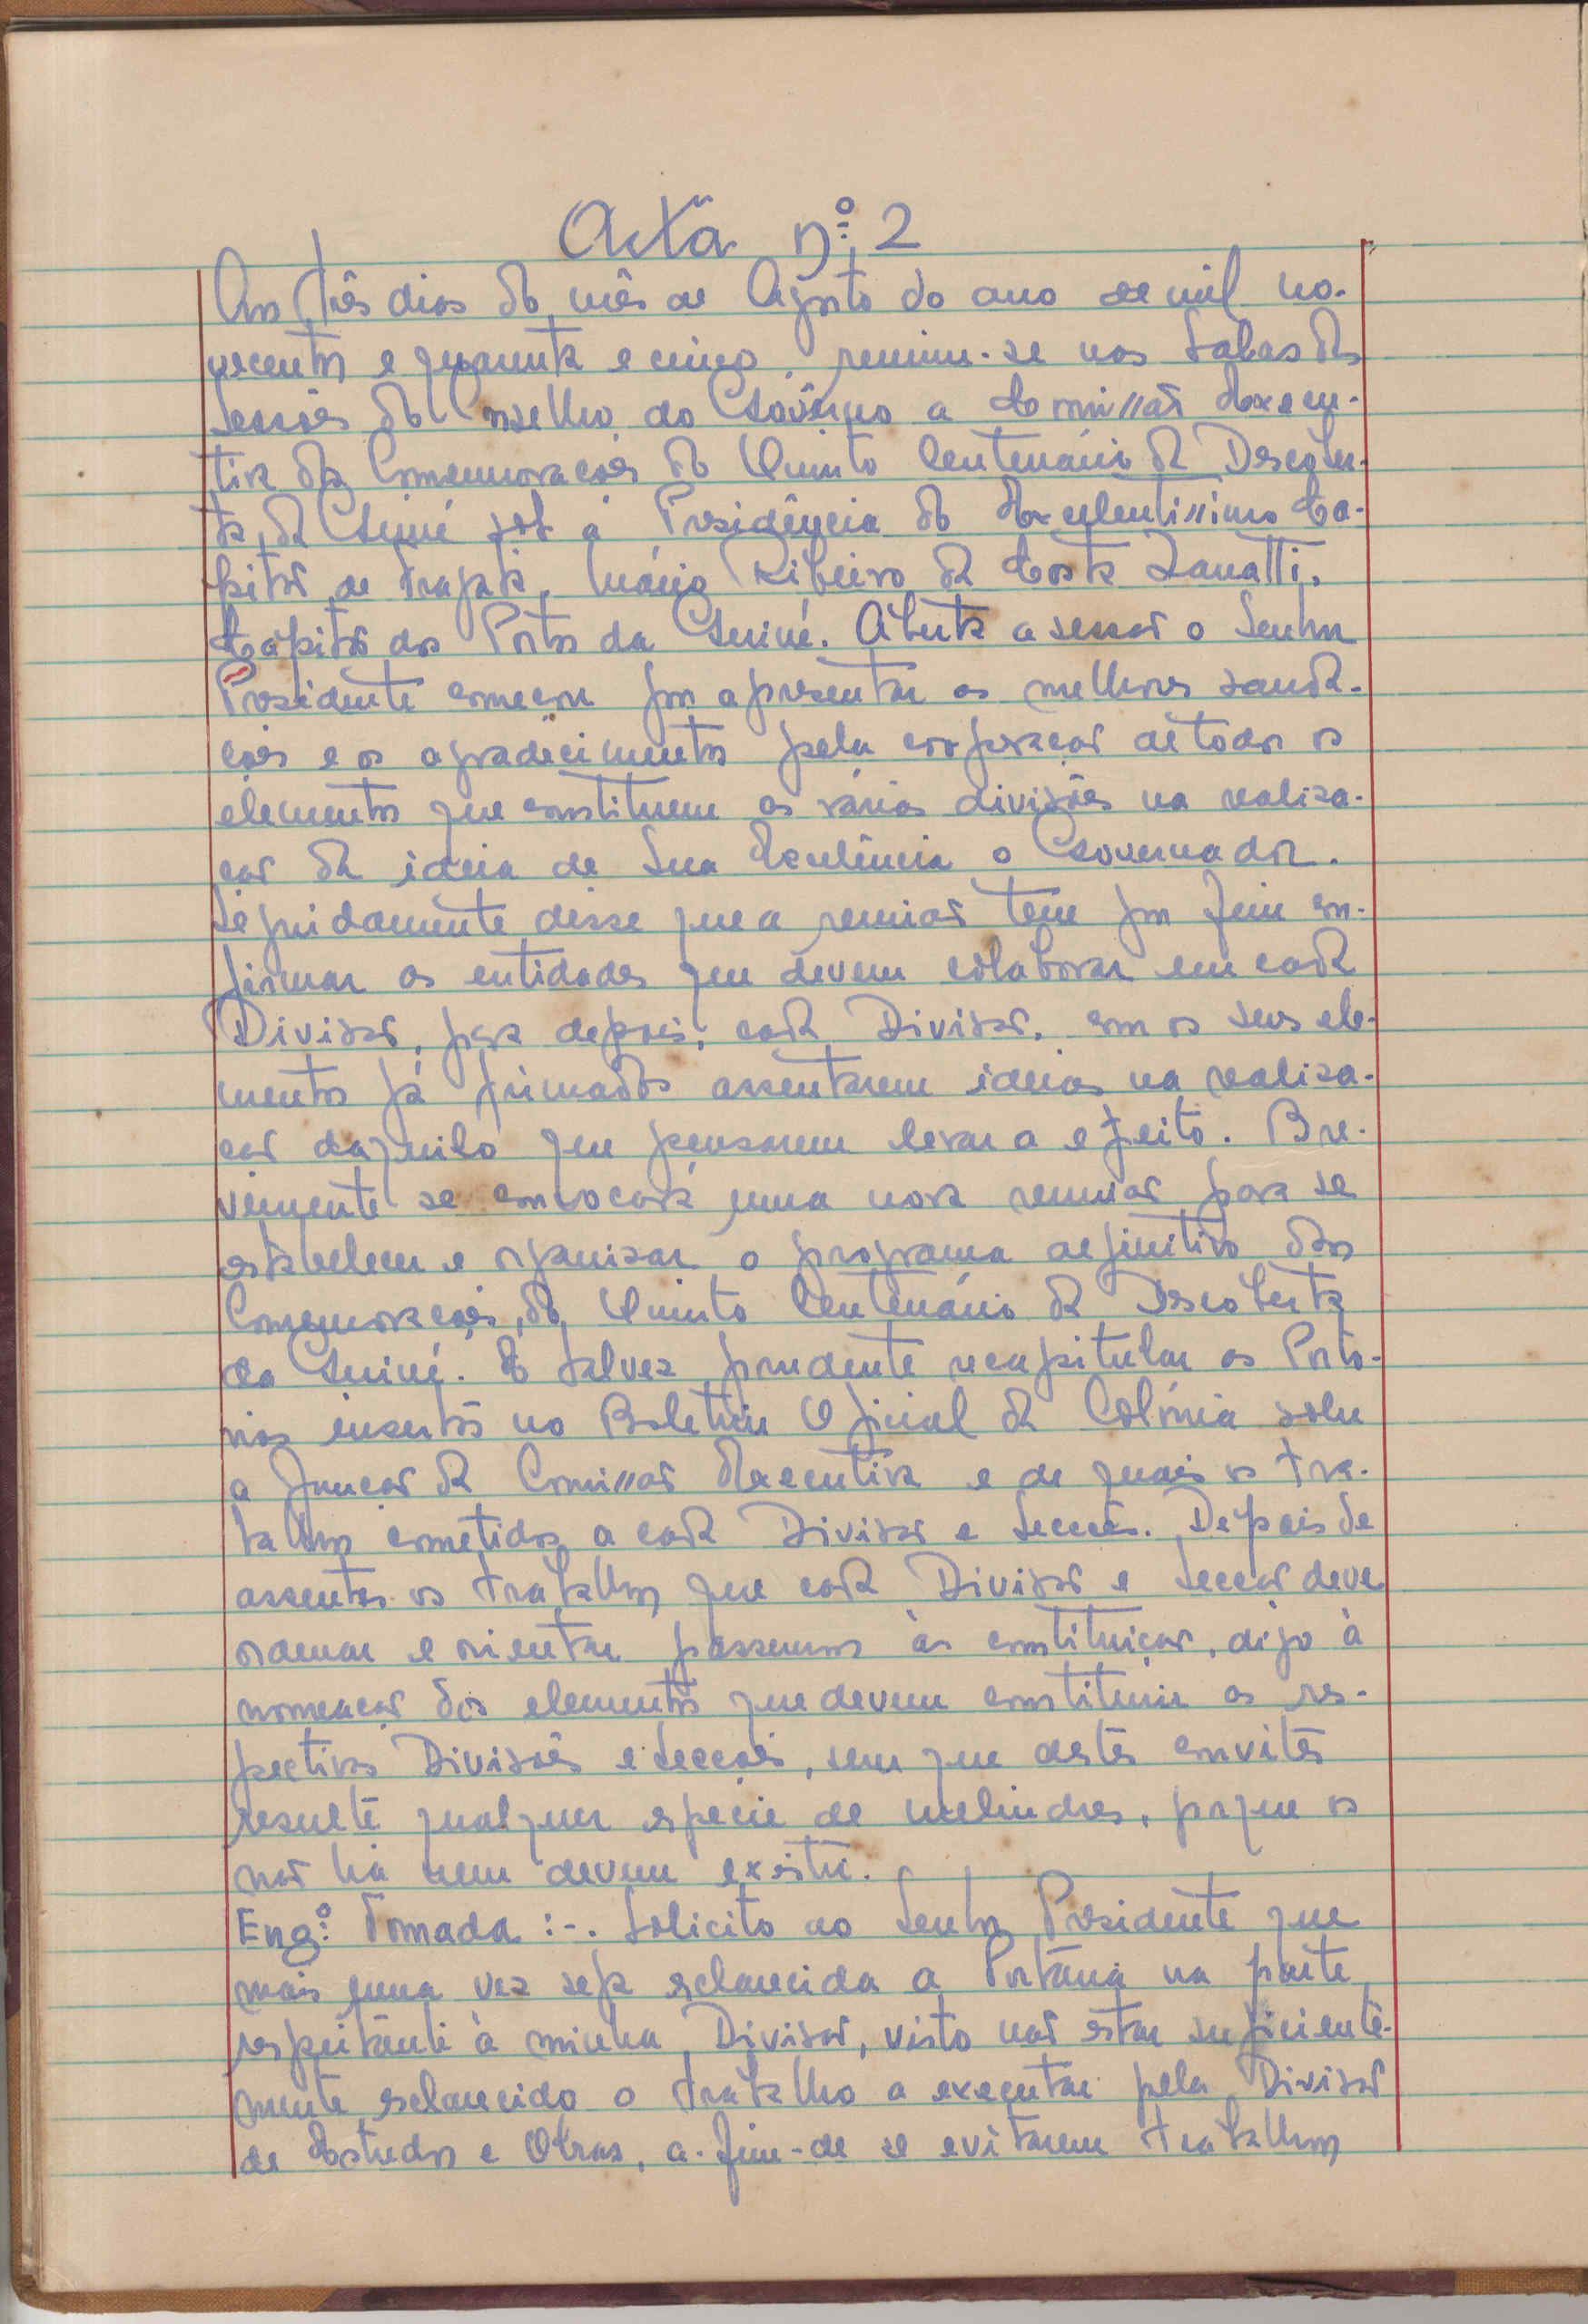 Acta n.º 2
Aos três dias do mês de Agosto do ano de mil no-
vecentos e quarenta e cinco, reuniu-se nas Salas das
Sessões do Conselho do Govêrno a Comissão Execu-
tiva das Comemorações do Quinto Centenário da Descober-
ta da Guiné sob a Presidência do Excelentissimo Ca-
pitão de Fragata, Mário Ribeiro da Costa Zanatti,
Capitão dos Portos da Guiné. Aberta a sessão o Senhor
Presidente começou por apresentar as melhores sauda-
ções e os agradecimentos pela cooperação de todos os
elementos que constituem as várias divisões na realiza-
ção da ideia de Sua Excelência o Governador.
Seguidamente disse que a reunião tem por fim con-
firmar as entidades que devem colaborar em cada
Divisão, para depois, cada Divisão, com os seus ele-
mentos já firmados assentarem ideias na realiza-
ção daquilo que pensarem levar a efeito. Bre-
vemente se convocará uma nova reunião para se
estabelecer e organizar o programa definitivo das
Comemorações do Quinto Centenário da Descoberta
da Guiné. É talvez prudente recapitular as Porta-
rias insertas no Boletim Oficial da Colónia sobre
a função da Comissão Executiva e de quais os tra-
balhos cometidos a cada Divisão e Secções. Depois de
assentes os trabalhos que cada Divisão e Secção deve
ordenar e orientar passemos às constituição, digo à
nomeação dos elementos que devem constituir as res-
pectivas Divisões e Secções, sem que destes convites
resulte qualquer espécie de melindres, porque os
não há nem devem existir.
Eng.º Tomada :-. Solicito ao Senhor Presidente que
mais uma vez seja esclarecida a Portaria na parte
respeitante à minha Divisão, visto não estar suficiente-
mente esclarecido o trabalho a executar pela Divisão
de Estudos e Obras, a-fim-de se evitarem trabalhos